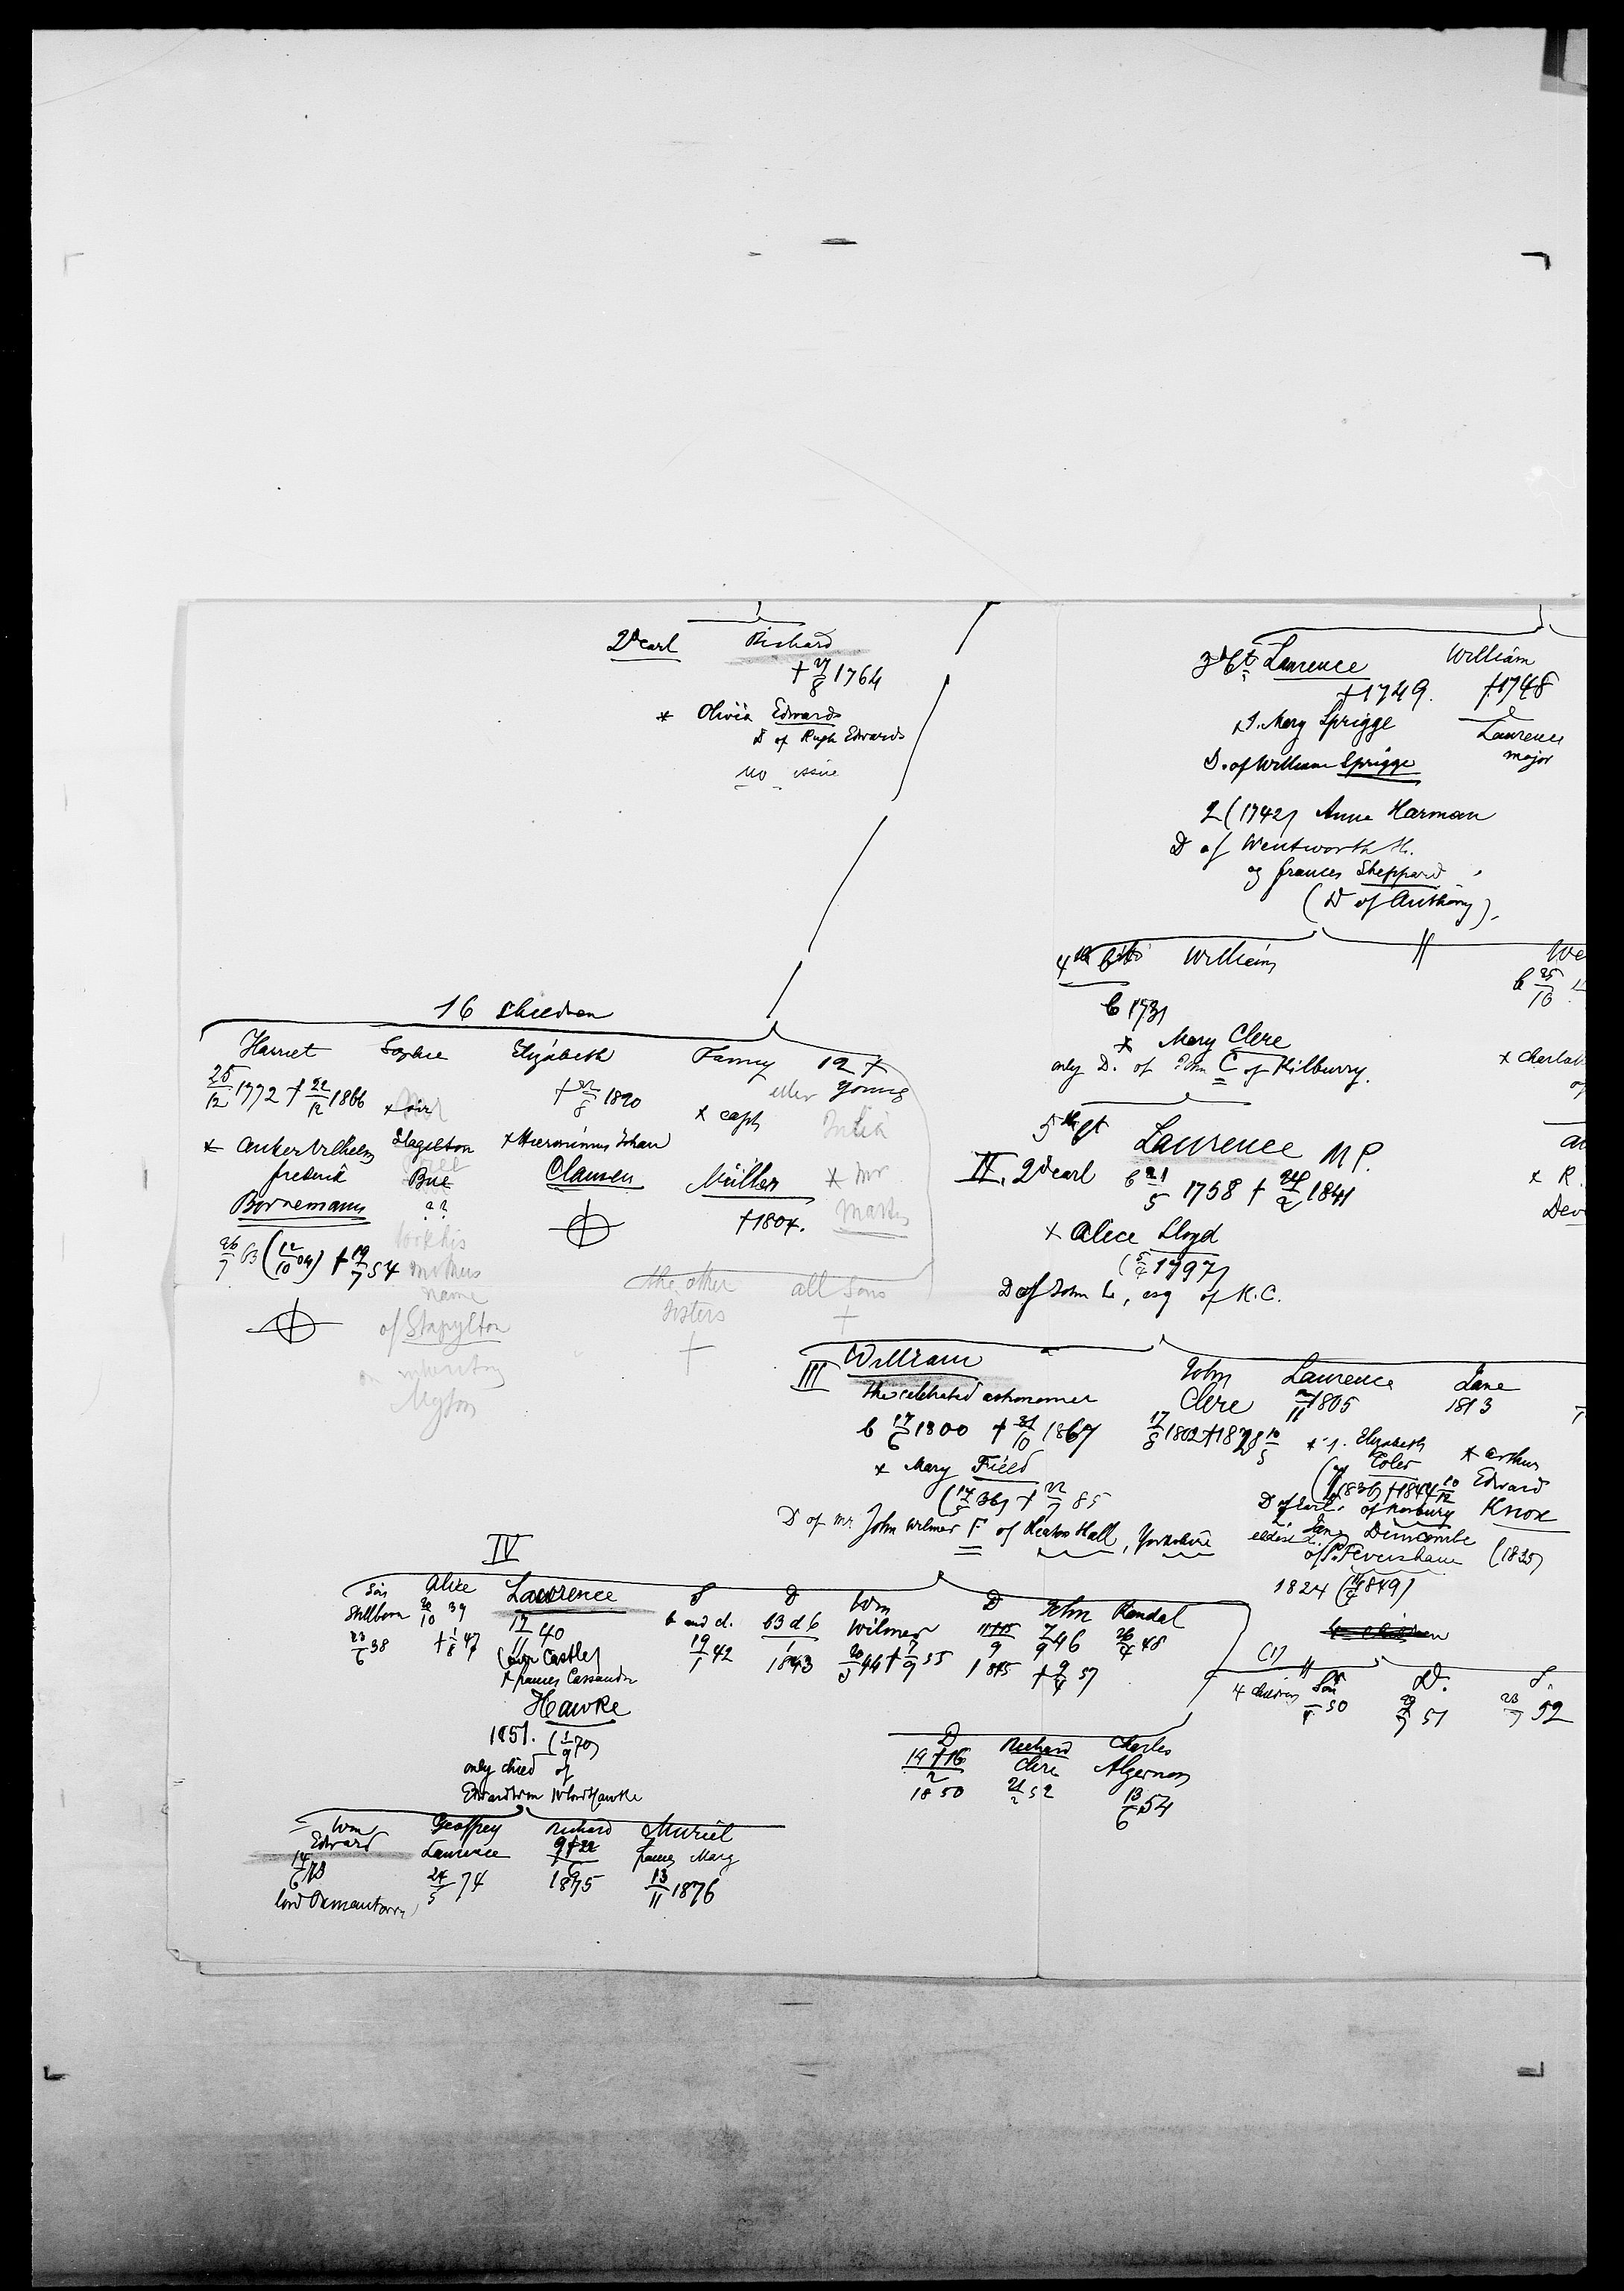 2d earl Richard
† 27/8 1764
* Olivia Edwards
D of Hugh Edwards
no issue
3d Bt. Laurence
†1749.
x1. Mary Sprigge
D. of William Sprigge
2 (1742) Anne Harman
D of Wentworth H.
og Frances Sheppard
(D of Anthony).
William
†1748
Laurence
major
4th William
b 1731
* Mary Clere
only D. of John C of Kilburry.
We
b 25/10
x Charlot
of
x R.
Dev
16 children
Harriet
25/12 1772 † 22/12 1866
* Anker Vilhelm
Frederik
Bornemann
26/7 63 (12/10 04) † 19/7 54
Sophie
x sir
Stapelton
Bue
??
took his
mothers
name
of Stapylton
on inheriting
Myton
Elizabeth
† 22/8 1820
* Hieronimus Johan
Clausen
Fanny
x capt
Müller
†1804.
12 †
eller young
Julia
* mr
Martin
the other
sisters
†
all sons
†
5th Bt Laurence M P.
II. 2d earl b 21/5 1758 † 24/2 1841
x Alice Lloyd
(5/4 1797)
D of John L, esq of K.C.
III William
the celebrated astronomer
b 17/6 1800 † 31/10 1867
* Mary Field
(14/5 36) † 22/7 85
D of mr. John Wilmer F of Heaton Hall, Yorkshire
John
Clere
17/8 1802 † 1828 18/5
Laurence
2/11 1805
* 1. Elizabeth
Toler
(1836) † 1844 10/12
D of Earl of Norbury
2. Jane Duncombe
eldest D.
of L. Feversham
1824 (1849)
Jane
1813
* Arthur
Edward
Knox
(1835)
(1)
4 children Son 50
D. 29/7 51
S. 23/7 52
IV
Son
stillborn
23/6 38
Alice
20/10 39
† 1/8 47
Laurence
17/11 40
(Birr Castle)
* Frances Cassandra
Hawke
1851. (1/9 70)
only child of
Edward Wm IV lord Hawke
S
b and d.
19/1 42
D
b3 d6
1
1843
Wm
Wilmer
20/3 44 † 7/9 55
D
11 † 15
9
1845
John
7/9 46
† 9/4 57
Randal
26/4 48
D
14 † 16
2
1850
Richard
Clere
21/2 52
Charles
Algernon
13/6 54
Wm
Edward
14/6 73
lord Oxmantown
Geoffrey
Laurence
24/5 74
Richard
9 † 22
6
1875
Muriel
Frances Mary
13/11 1876